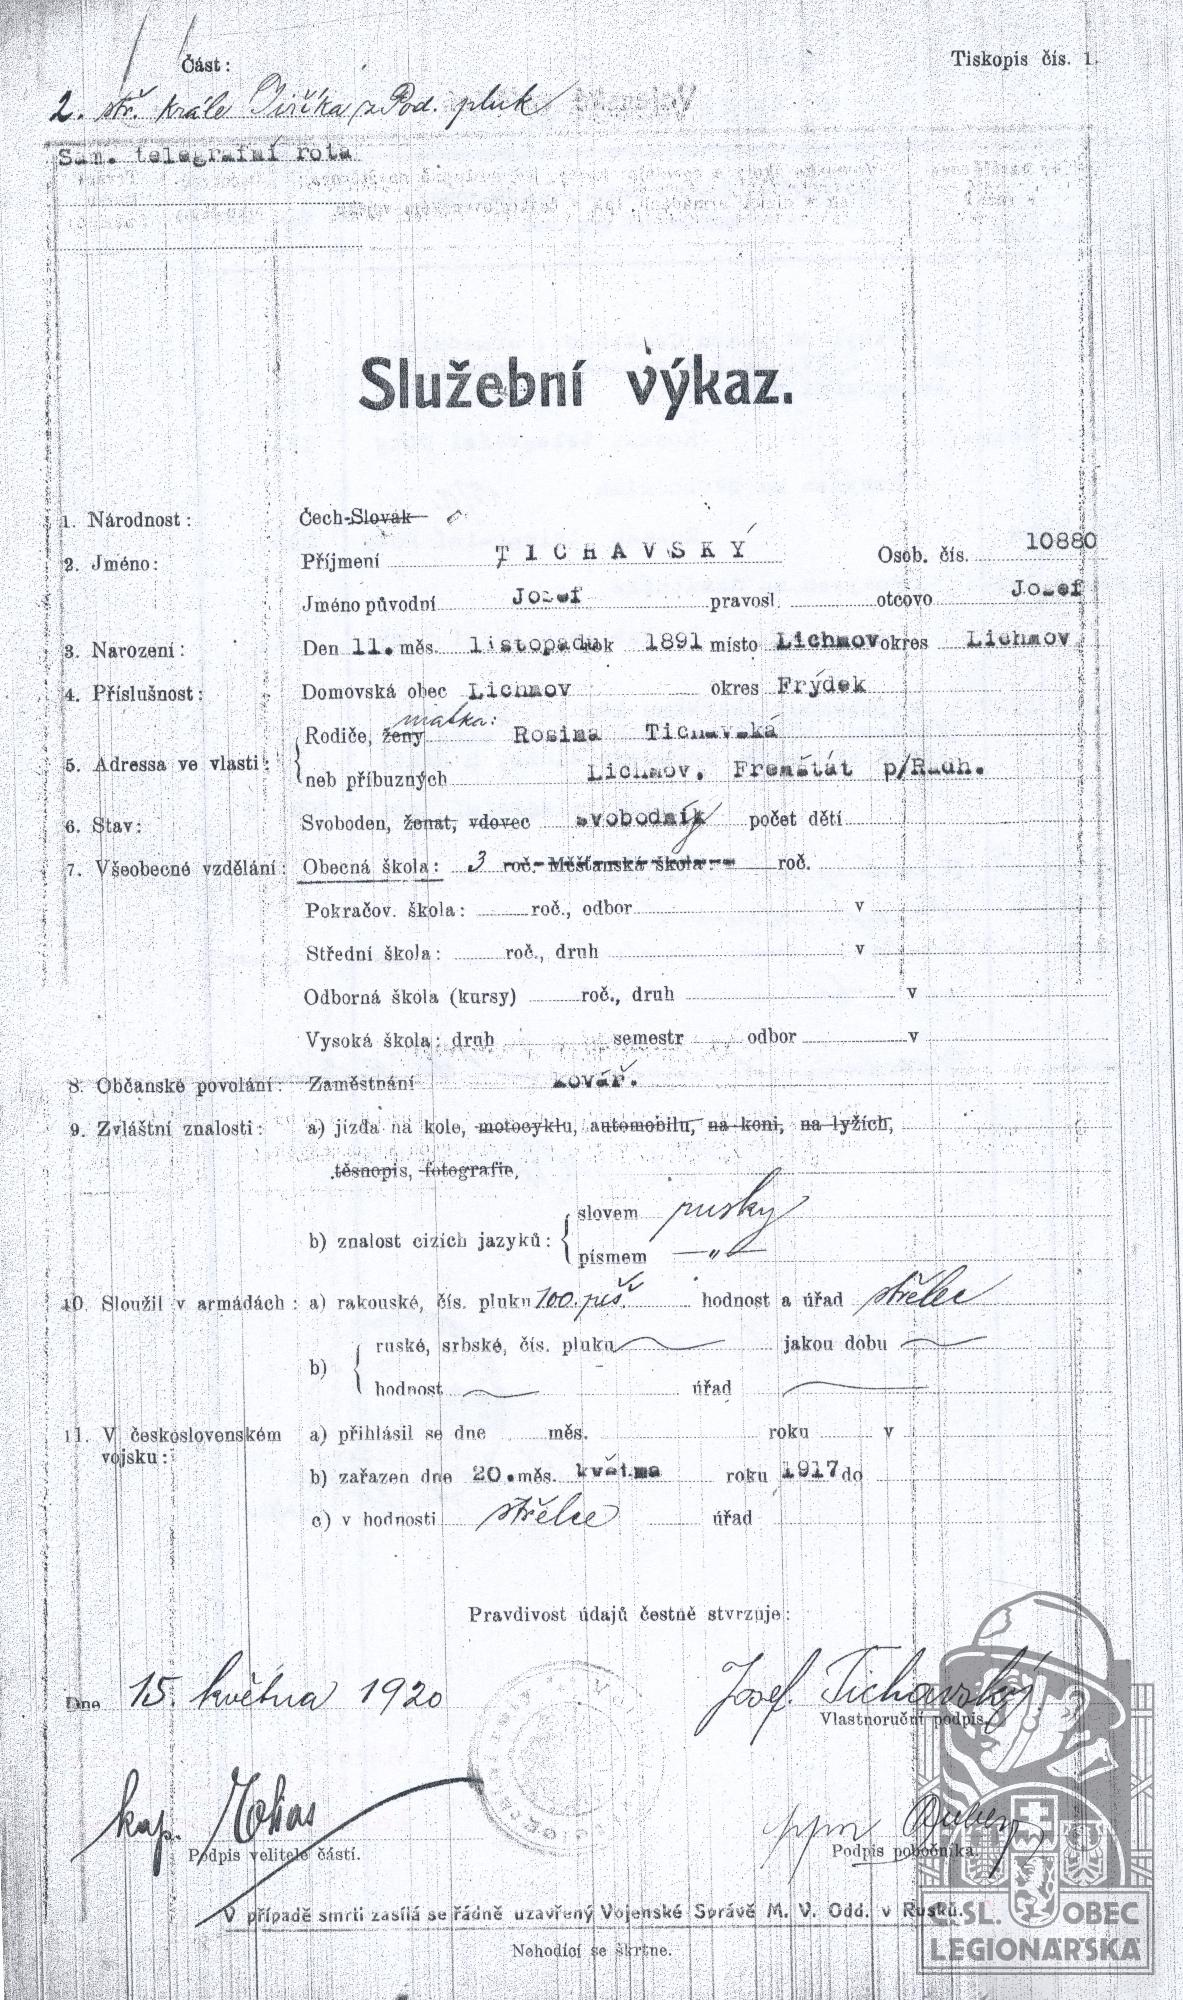 Část:
Tiskopis čís. 1.
2. stř. krále Jiříka z Pod. pluk
Sam. telegrafní rota
Služební výkaz.
1. Národnost: Čech-Slovák
2. Jméno: Příjmení TICHAVSKÝ Osob. čís. 10880
Jméno původní Josef pravosl. otcovo Josef
3. Narození: Den 11. měs. listopadu rok 1891 místo Lichnov okres Lichnov
4. Příslušnost: Domovská obec Lichnov okres Frýdek
matka:
Rodiče, ženy Rosina Tichavská
5. Adressa ve vlasti:
neb příbuzných Lichnov. Frenštát p/Radh.
6. Stav: Svoboden, ženat, vdovec svobodný počet dětí
7. Všeobecné vzdělání: Obecná škola: 3 roč. Měšťanská škola: roč.
Pokračov. škola: roč., odbor v
Střední škola: roč., druh v
Odborná škola (kursy) roč., druh v
Vysoká škola: druh semestr odbor v
8. Občanské povolání: Zaměstnání kovář.
9. Zvláštní znalosti: a) jízda na kole, motocyklu, automobilu, na koni, na lyžích,
těsnopis, fotografie,
slovem rusky
b) znalost cizích jazyků:
písmem —„—
10. Sloužil v armádách: a) rakouské, čís. pluku 100. pěš. hodnost a úřad střelec
ruské, srbské, čís. pluku jakou dobu
b)
hodnost úřad
11. V československém a) přihlásil se dne měs. roku v
vojsku:
b) zařazen dne 20. měs. května roku 1917 do
c) v hodnosti střelce úřad
Pravdivost údajů čestně stvrzuje:
Dne 15. května 1920 Josef Tichavský
Vlastnoruční podpis.
kap.
Podpis velitele části.
Podpis pobočníka.
V případě smrti zasílá se řádně uzavřený Vojenské Správě M. V. Odd. v Rusku.
Nehodící se škrtne.
Č.SL. OBEC
LEGIONÁŘSKÁ